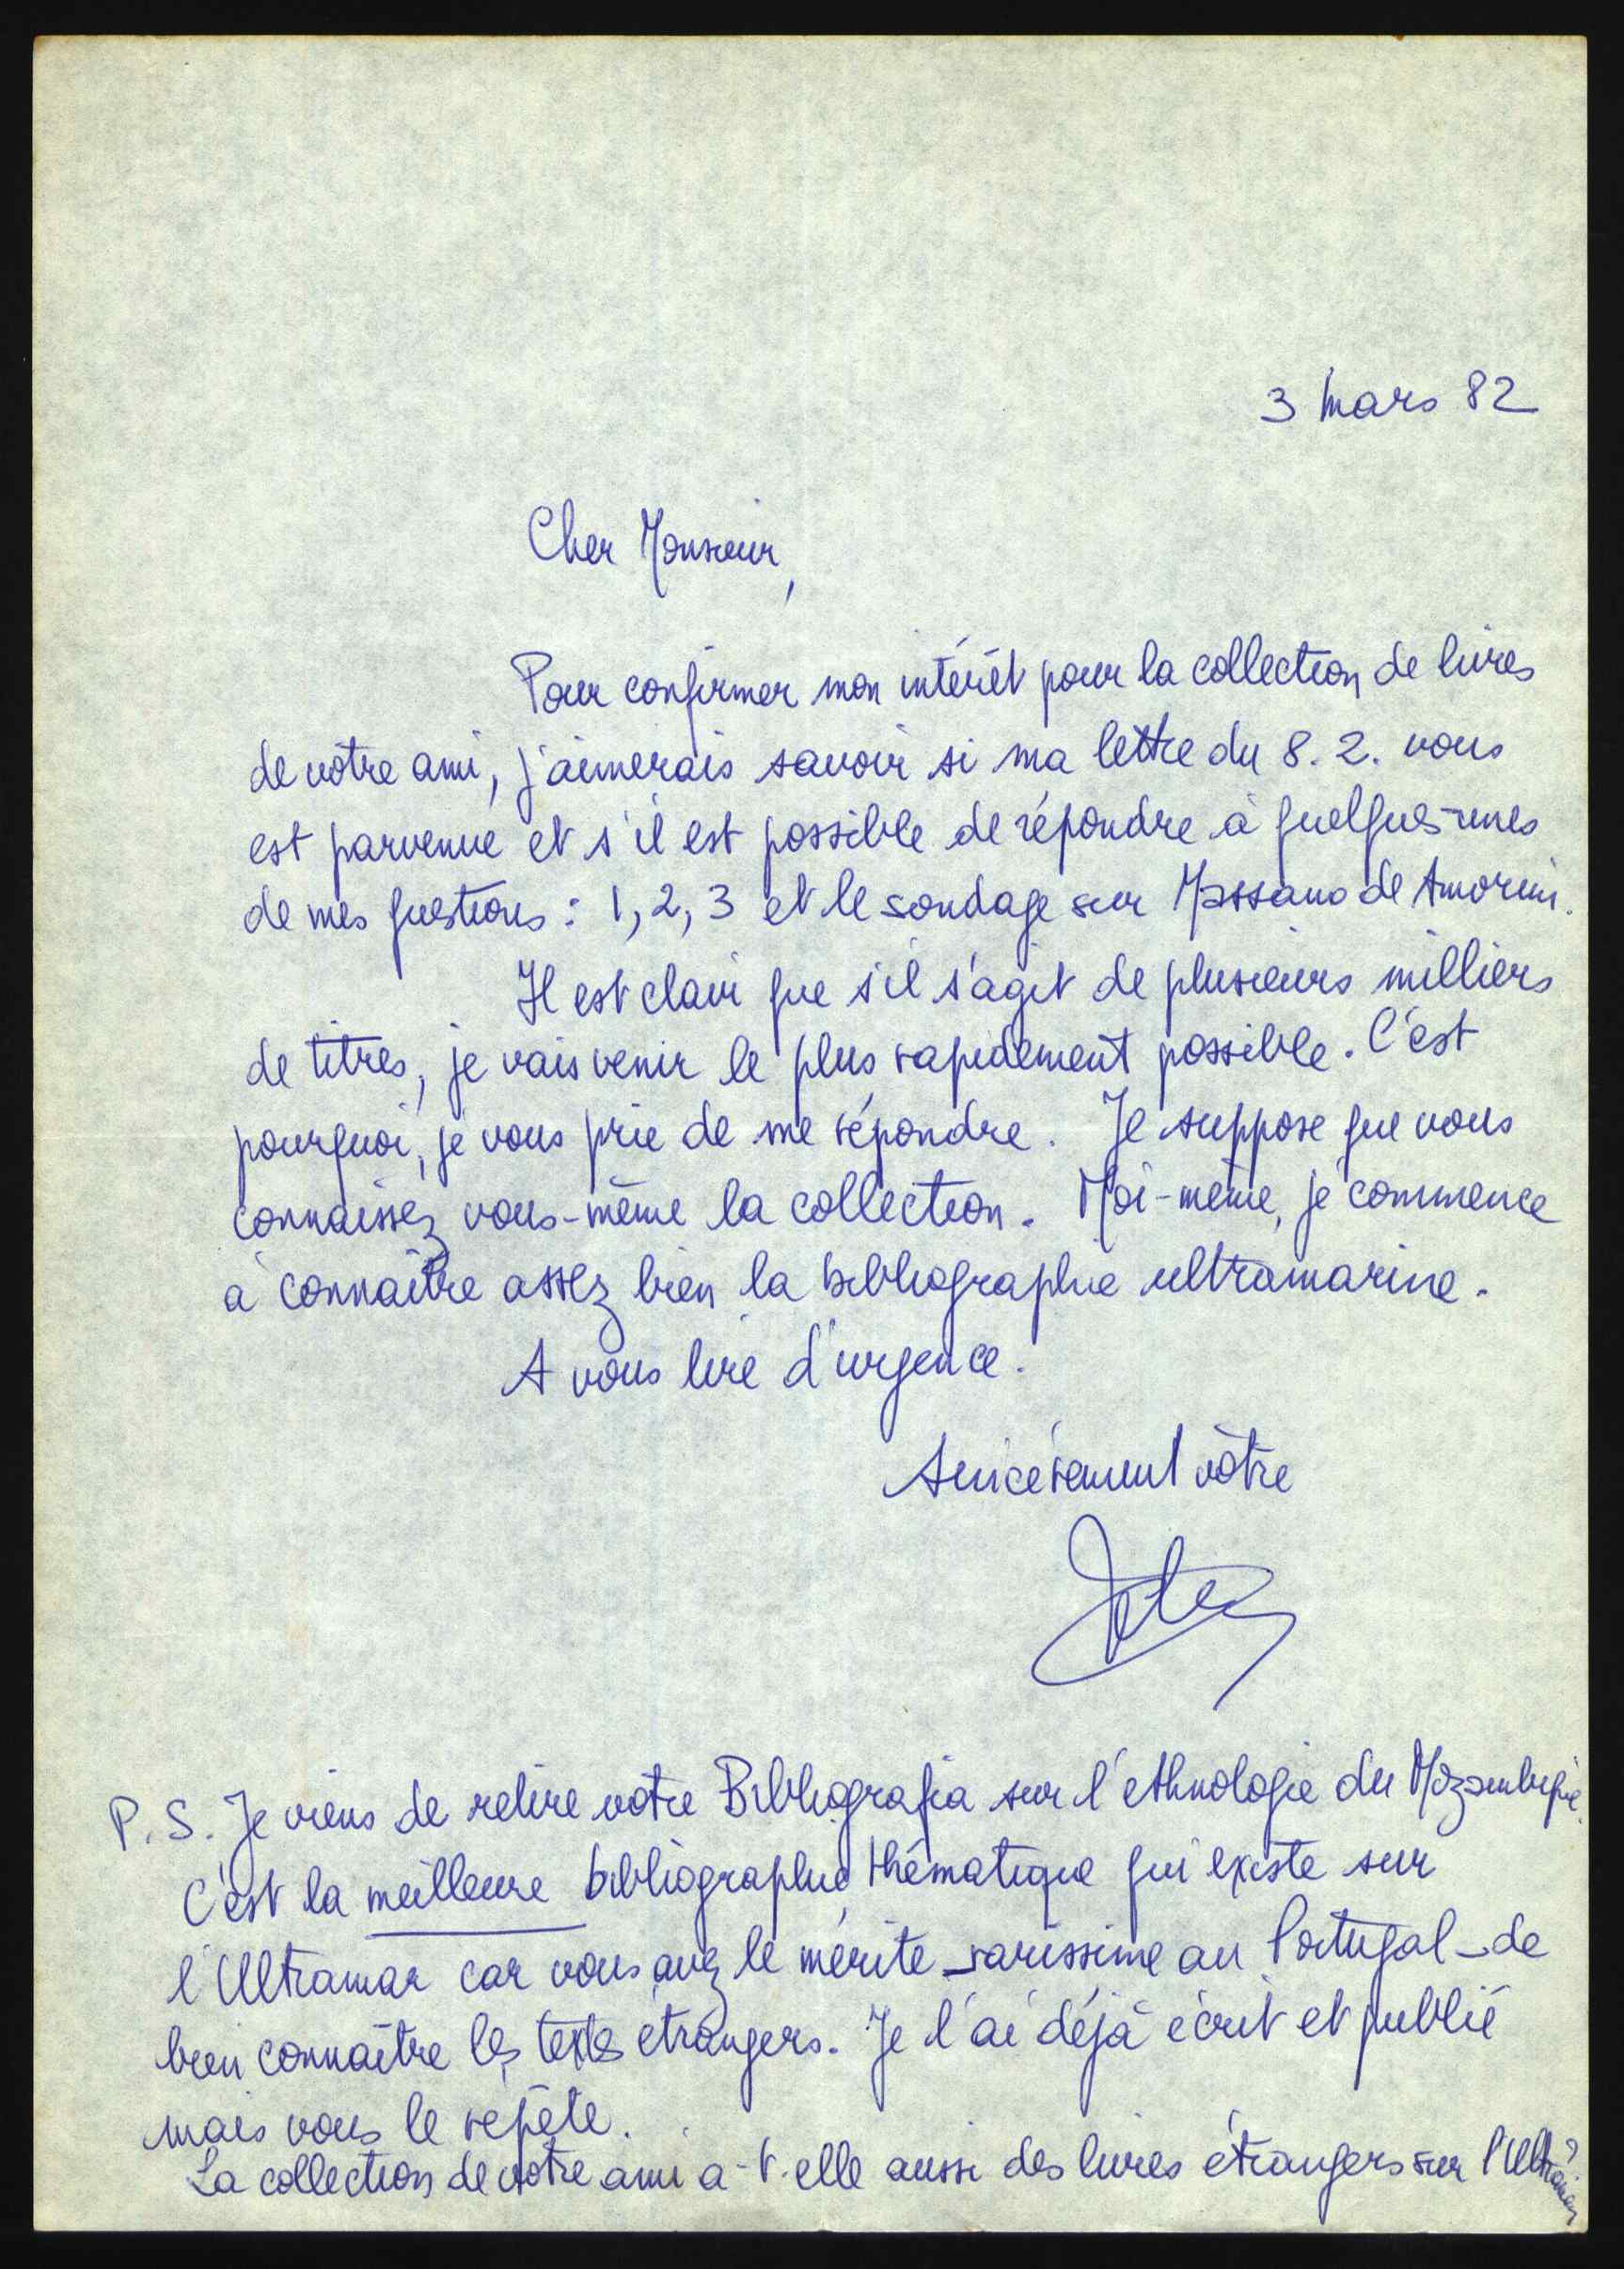 3 mars 82
Cher Monsieur,
Pour confirmer mon intérêt pour la collection de livres
de votre ami, j'aimerais savoir si ma lettre du 8.2. vous
est parvenue et s'il est possible de répondre à quelques-unes
de mes questions : 1, 2, 3 et le sondage sur Massano de Amorim.
Il est clair que s'il s'agit de plusieurs milliers
de titres, je vais venir le plus rapidement possible. C'est
pourquoi, je vous prie de me répondre. Je suppose que vous
connaissez vous-même la collection. Moi-même, je commence
à connaître assez bien la bibliographie ultramarine.
A vous lire d'urgence.
Sincèrement vôtre
P.S. Je viens de relire votre Bibliografia sur l'ethnologie du Mozambique.
C'est la meilleure bibliographie thématique qui existe sur
l'Ultramar car vous avez le mérite - rarissime au Portugal - de
bien connaître les textes étrangers. Je l'ai déjà écrit et publié
mais vous le répète.
La collection de votre ami a-t-elle aussi des livres étrangers sur l'Ultramar ?